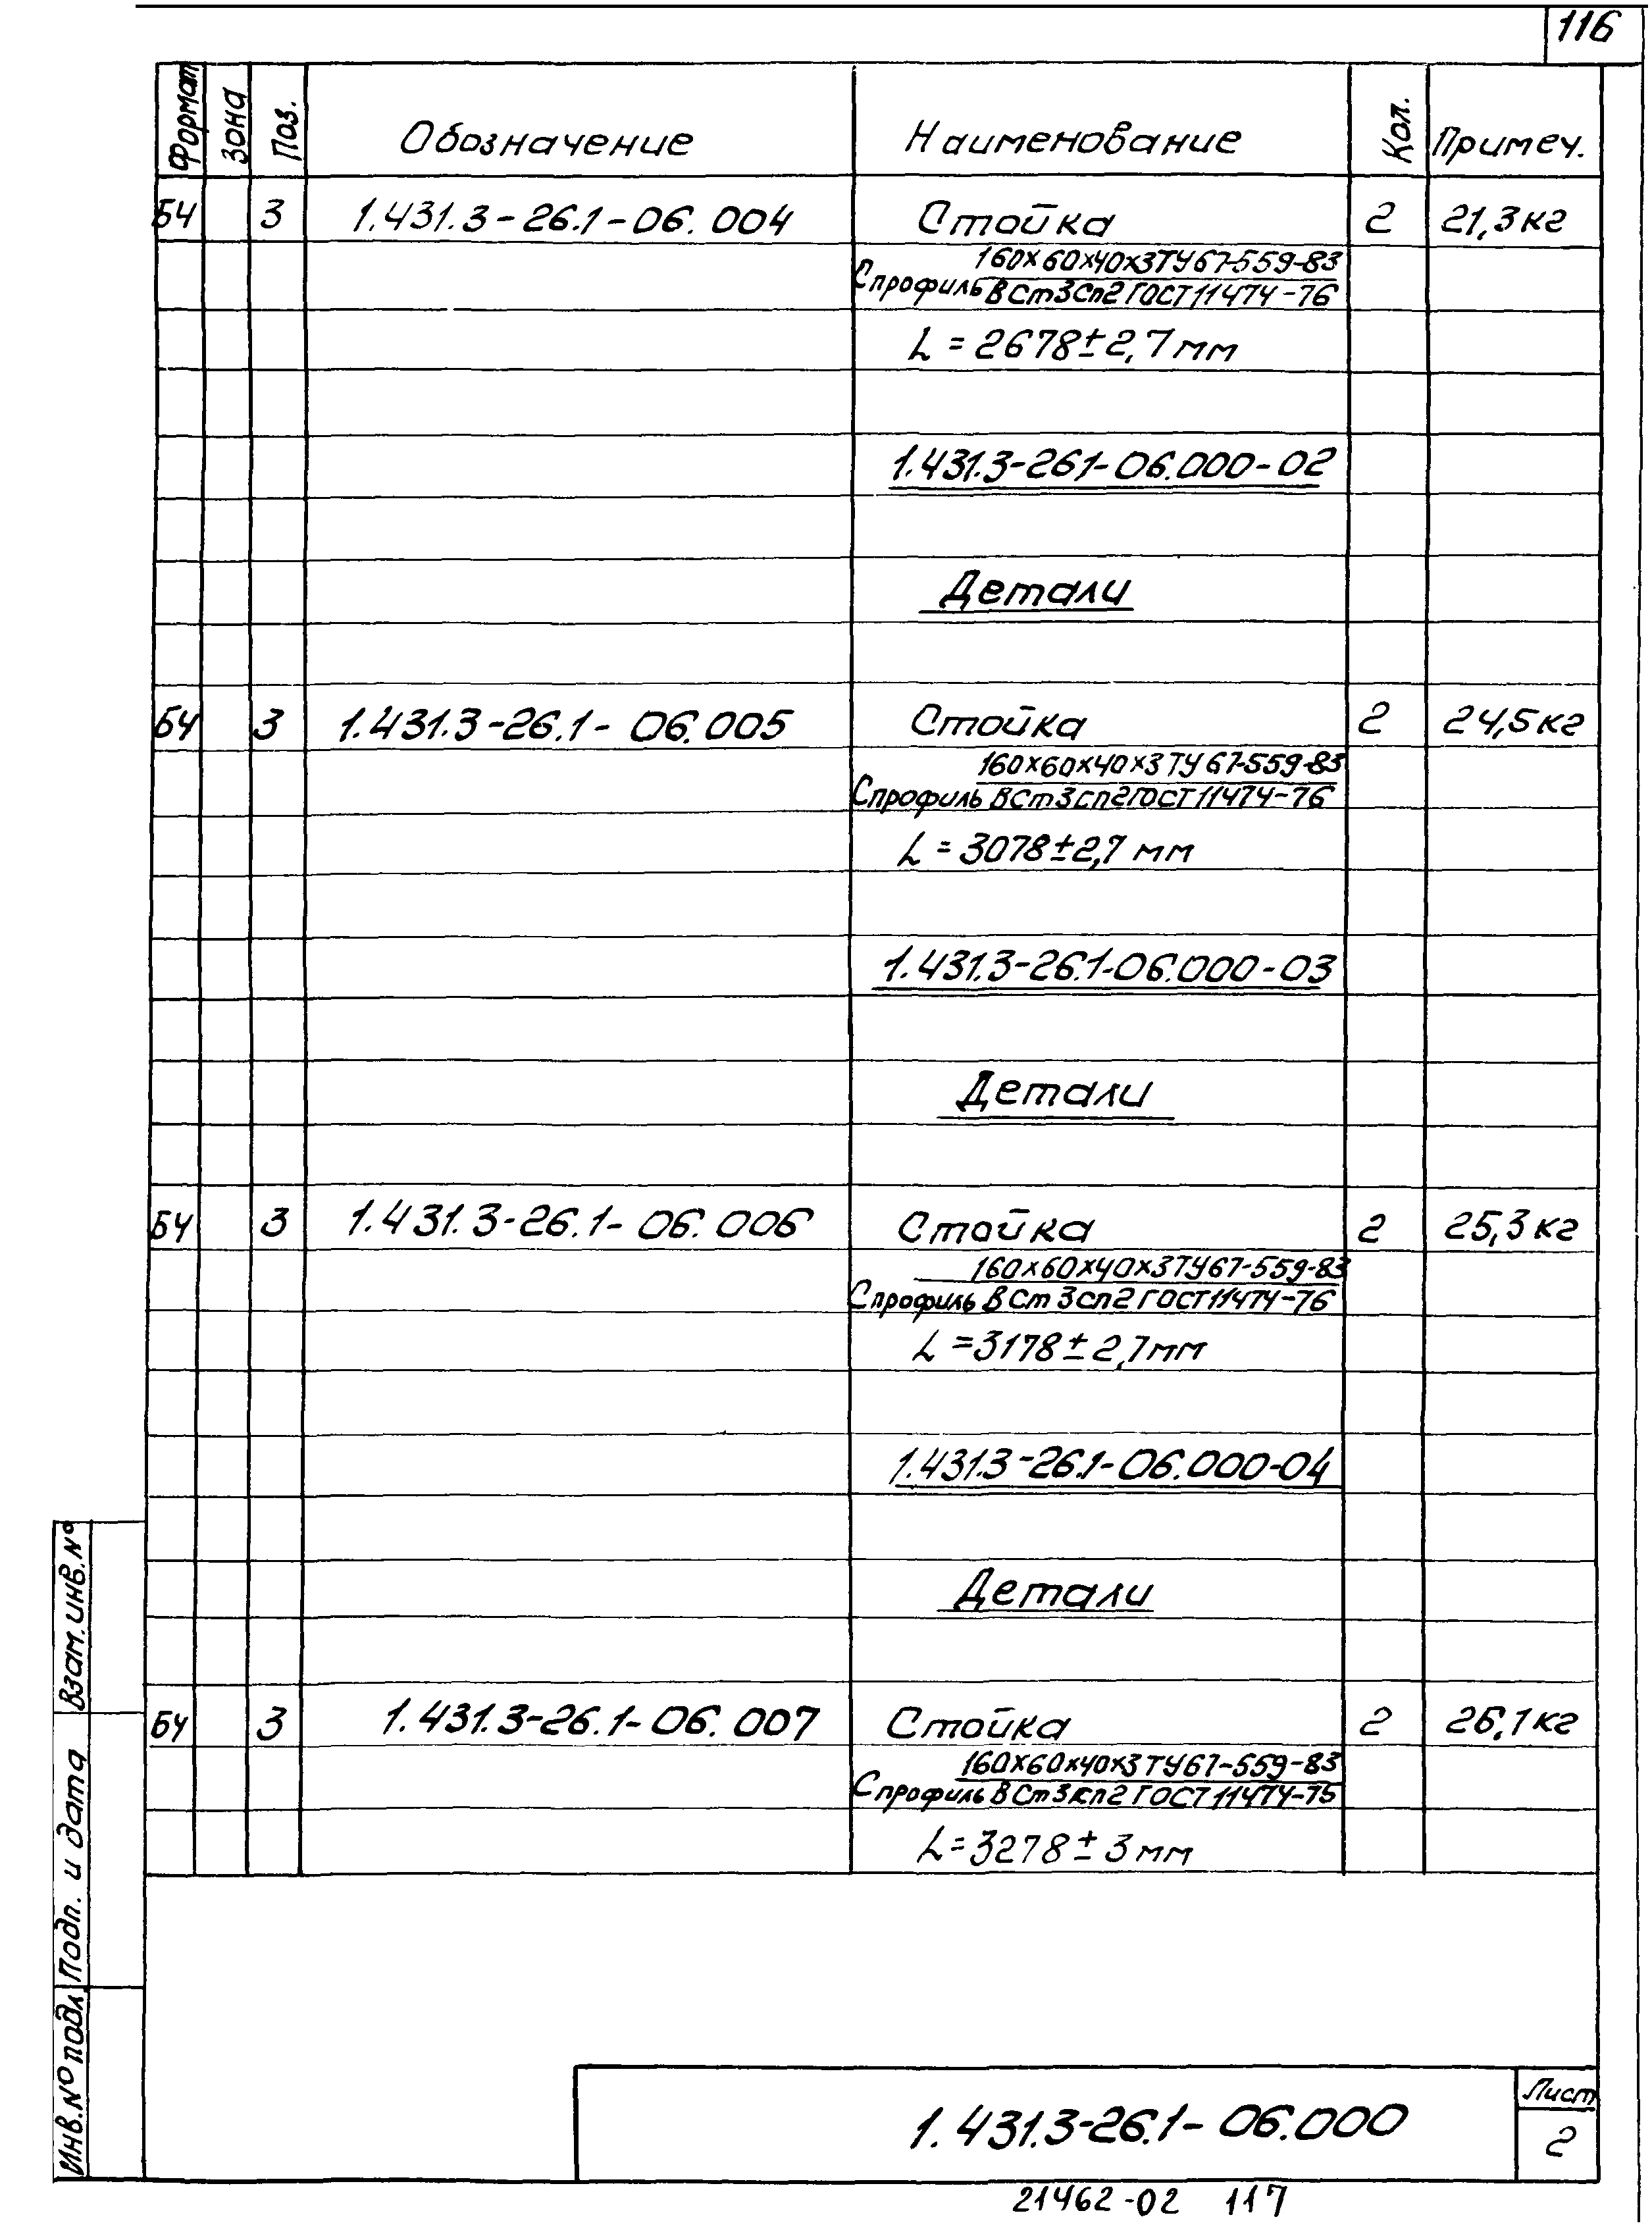 116
Формат Зона Поз. Обозначение Наименование Кол. Примеч.
БЧ 3 1.431.3-26.1-06.004 Стойка 2 21,3кг
160х60х40х3ТУ67-559-83
Спрофиль ВСт3Сп2ГОСТ11474-76
L = 2678±2,7мм
1.431.3-261-06.000-02
Детали
БЧ 3 1.431.3-26.1-06.005 Стойка 2 24,5кг
160х60х40х3ТУ67-559-83
Спрофиль ВСт3сп2ГОСТ11474-76
L = 3078±2,7 мм
1.431.3-26.1-06.000-03
Детали
БЧ 3 1.431.3-26.1-06.006 Стойка 2 25,3кг
160х60х40х3ТУ67-559-83
Спрофиль ВСт3сп2ГОСТ11474-76
L =3178 ± 2,7мм
1.431.3-26.1-06.000-04
Детали
БЧ 3 1.431.3-26.1-06.007 Стойка 2 26,1кг
160х60х40х3ТУ67-559-83
Спрофиль ВСт3кп2ГОСТ11474-75
L=3278± 3мм
Взам.инв.№
Подп. и дата
Инв.№подл
1.431.3-26.1-06.000
Лист
2
21462-02 117